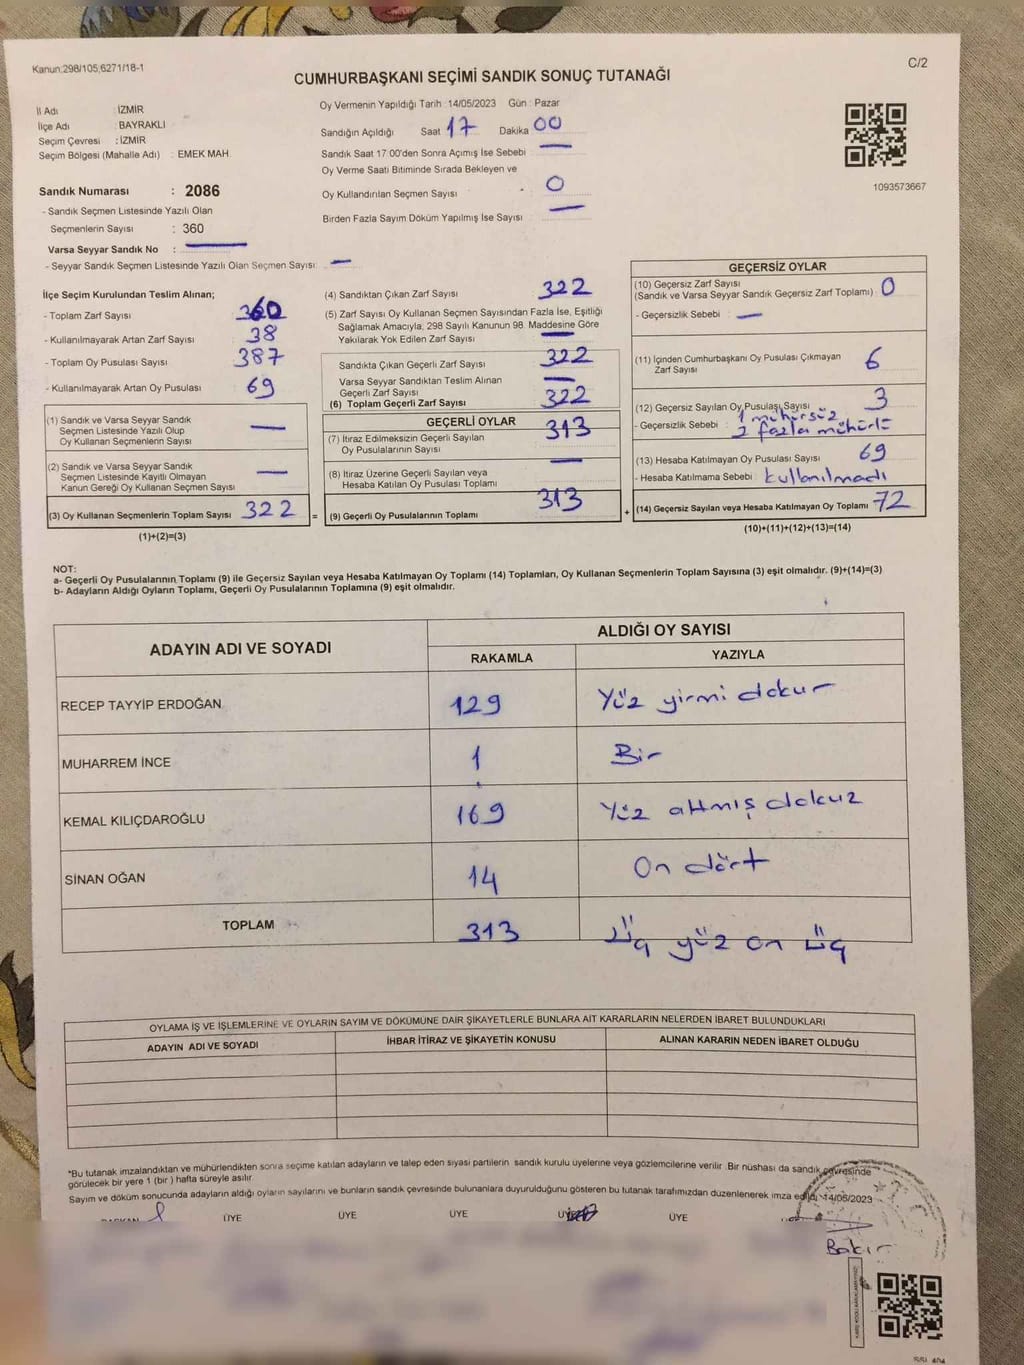 Kanun:298/105,6271/18-1
C/2
CUMHURBAŞKANI SEÇİMİ SANDIK SONUÇ TUTANAĞI
İl Adı : İZMİR
İlçe Adı : BAYRAKLI
Seçim Çevresi : İZMİR
Seçim Bölgesi (Mahalle Adı) : EMEK MAH.
Sandık Numarası : 2086
- Sandık Seçmen Listesinde Yazılı Olan
Seçmenlerin Sayısı : 360
Varsa Seyyar Sandık No :
- Seyyar Sandık Seçmen Listesinde Yazılı Olan Seçmen Sayısı:
Oy Vermenin Yapıldığı Tarih : 14/05/2023 Gün : Pazar
Sandığın Açıldığı Saat 17 Dakika 00
Sandık Saat 17:00'den Sonra Açımış İse Sebebi
Oy Verme Saati Bitiminde Sırada Bekleyen ve
Oy Kullandırılan Seçmen Sayısı 0
Birden Fazla Sayım Döküm Yapılmış İse Sayısı
1093573667
İlçe Seçim Kurulundan Teslim Alınan;
- Toplam Zarf Sayısı 360
- Kullanılmayarak Artan Zarf Sayısı 38
- Toplam Oy Pusulası Sayısı 387
- Kullanılmayarak Artan Oy Pusulası 69
(1) Sandık ve Varsa Seyyar Sandık
Seçmen Listesinde Yazılı Olup
Oy Kullanan Seçmenlerin Sayısı
(2) Sandık ve Varsa Seyyar Sandık
Seçmen Listesinde Kayıtlı Olmayan
Kanun Gereği Oy Kullanan Seçmen Sayısı
(3) Oy Kullanan Seçmenlerin Toplam Sayısı 322
(1)+(2)=(3)
(4) Sandıktan Çıkan Zarf Sayısı 322
(5) Zarf Sayısı Oy Kullanan Seçmen Sayısından Fazla İse, Eşitliği
Sağlamak Amacıyla, 298 Sayılı Kanunun 98. Maddesine Göre
Yakılarak Yok Edilen Zarf Sayısı
Sandıkta Çıkan Geçerli Zarf Sayısı 322
Varsa Seyyar Sandıktan Teslim Alınan
Geçerli Zarf Sayısı
(6) Toplam Geçerli Zarf Sayısı 322
GEÇERLİ OYLAR
(7) İtiraz Edilmeksizin Geçerli Sayılan 313
Oy Pusulalarının Sayısı
(8) İtiraz Üzerine Geçerli Sayılan veya
Hesaba Katılan Oy Pusulası Toplamı
= (9) Geçerli Oy Pusulalarının Toplamı 313 +
GEÇERSİZ OYLAR
(10) Geçersiz Zarf Sayısı
(Sandık ve Varsa Seyyar Sandık Geçersiz Zarf Toplamı) : 0
- Geçersizlik Sebebi :
(11) İçinden Cumhurbaşkanı Oy Pusulası Çıkmayan
Zarf Sayısı 6
(12) Geçersiz Sayılan Oy Pusulası Sayısı 3
- Geçersizlik Sebebi : 1 mühürsüz
2 fazla mühürlü
(13) Hesaba Katılmayan Oy Pusulası Sayısı 69
- Hesaba Katılmama Sebebi : kullanılmadı
(14) Geçersiz Sayılan veya Hesaba Katılmayan Oy Toplamı 72
(10)+(11)+(12)+(13)=(14)
NOT:
a- Geçerli Oy Pusulalarının Toplamı (9) ile Geçersiz Sayılan veya Hesaba Katılmayan Oy Toplamı (14) Toplamları, Oy Kullanan Seçmenlerin Toplam Sayısına (3) eşit olmalıdır. (9)+(14)=(3)
b- Adayların Aldığı Oyların Toplamı, Geçerli Oy Pusulalarının Toplamına (9) eşit olmalıdır.
ADAYIN ADI VE SOYADI
ALDIĞI OY SAYISI
RAKAMLA YAZIYLA
RECEP TAYYİP ERDOĞAN 129 Yüz yirmi dokuz
MUHARREM İNCE 1 Bir
KEMAL KILIÇDAROĞLU 169 Yüz altmış dokuz
SİNAN OĞAN 14 On dört
TOPLAM 313 Üç yüz on üç
OYLAMA İŞ VE İŞLEMLERİNE VE OYLARIN SAYIM VE DÖKÜMÜNE DAİR ŞİKAYETLERLE BUNLARA AİT KARARLARIN NELERDEN İBARET BULUNDUKLARI
ADAYIN ADI VE SOYADI İHBAR İTİRAZ VE ŞİKAYETİN KONUSU ALINAN KARARIN NEDEN İBARET OLDUĞU
*Bu tutanak imzalandıktan ve mühürlendikten sonra seçime katılan adayların ve talep eden siyasi partilerin sandık kurulu üyelerine veya gözlemcilerine verilir .Bir nüshası da sandık çevresinde
görülecek bir yere 1 (bir ) hafta süreyle asılır.
Sayım ve döküm sonucunda adayların aldığı oyların sayılarını ve bunların sandık çevresinde bulunanlara duyurulduğunu gösteren bu tutanak tarafımızdan düzenlenerek imza edildi. 14/05/2023
BAŞKAN ÜYE ÜYE ÜYE ÜYE ÜYE
Bakır